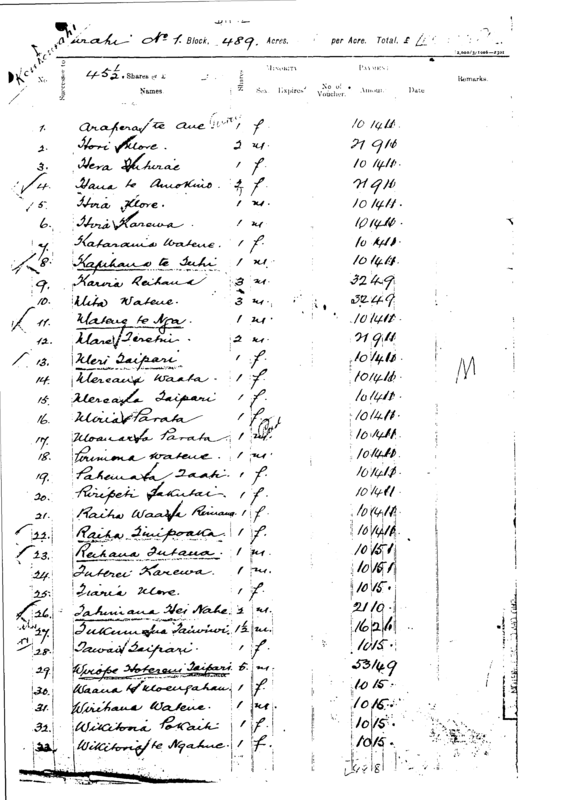 Koukourahi
urahi No 1. Block, 489. Acres. per Acre. Total, £
Nr. Succession to 45½. Shares Names. Shares MINORITY Sex. Expires No of Voucher. PAYMENT Amount. Date Remarks.
1. Arapera te Aue 1 f. 10 14 11
2. Hori More. 2 m. 21 9 10
3. Hera Puhirae 1 f 10 14 11.
4. Hana te Amokino. 2 f. 21 9 10
5. Hoia More. 1 m. 10 14 11
6. Hoia Karewa. 1 m. 10 14 11
7. Katarania Watene. 1 f. 10 14 11
8. Kapihana te Tuhi 1 m. 10 14 11
9. Karoia Reihana 3 m. 32 4 9
10. Mita Watene. 3 m. 32 4 9
11. Mateng te Nga. 1 m. 10 14 11
12. Mare Tereti 2 m. 21 9 10
13. Meri Taipari 1 f. 10 14 11
14. Mereana Waata. 1 f. 10 14 11
M
15. Mereana Taipari 1 f. 10 14 11
16. Miria Parata 1 f. 10 14 11.
17. Moanaroa Parata. 1 10 14 11
18. Porimona Watene. 1 m. 10 14 11
19. Pahemata Taati. 1 f. 10 14 11
20. Piripeti Takutai. 1 f. 10 14 11
21. Raiha Waata 1 f. 10 14 11
22. Raiha Tinipoaka. 1 f. 10 14 11
23. Reihana Tutana. 1 m. 10 15 1
24. Tuterei Karewa. 1 m. 10 15 1
25. Tiaria More. 1 f. 10 15.
26. Tahimana Hei Nahe. 2 m. 21 10.
27. Taiwiwi. 1½ m. 16 2 6
28. Tawai Taipari. 1 f. 10 15.
29. Wirope Hotereni Taipari. 5 m. 53 14 9
30. Waana te Moengahau. 1 f. 10 15.
31. Wirihana Watene. 1 m. 10 15.
32. Wikitoria Pokaiti 1 f. 10 15.
33. Wikitoria te Ngahue. 1 f. 10 15.